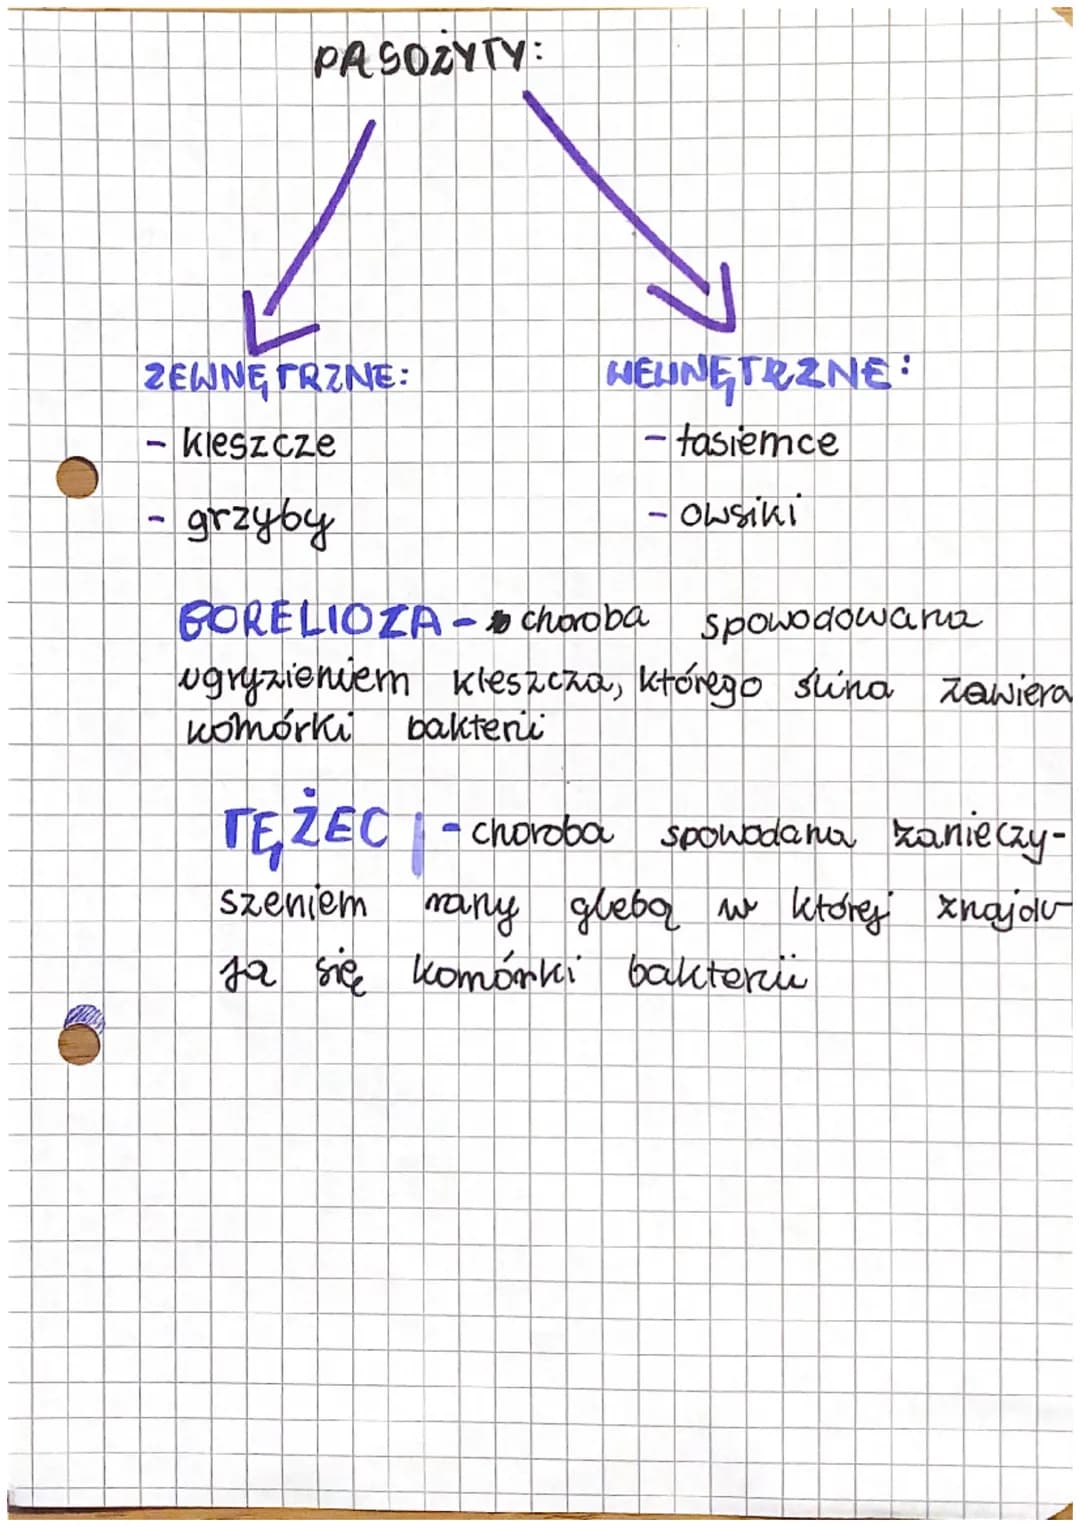 PASOŻYTY:
ZEWNĘTRZNE: WEWNĘTRZNE:
- kleszcze - tasiemce
- grzyby - owsiki
BORELIOZA - choroba spowodowana
ugryzieniem kleszcza, którego ślina zawiera
komórki bakterii
TĘŻEC - choroba spowodana zanieczy-
szeniem rany glebą w której znajdu
ją się komórki bakterii